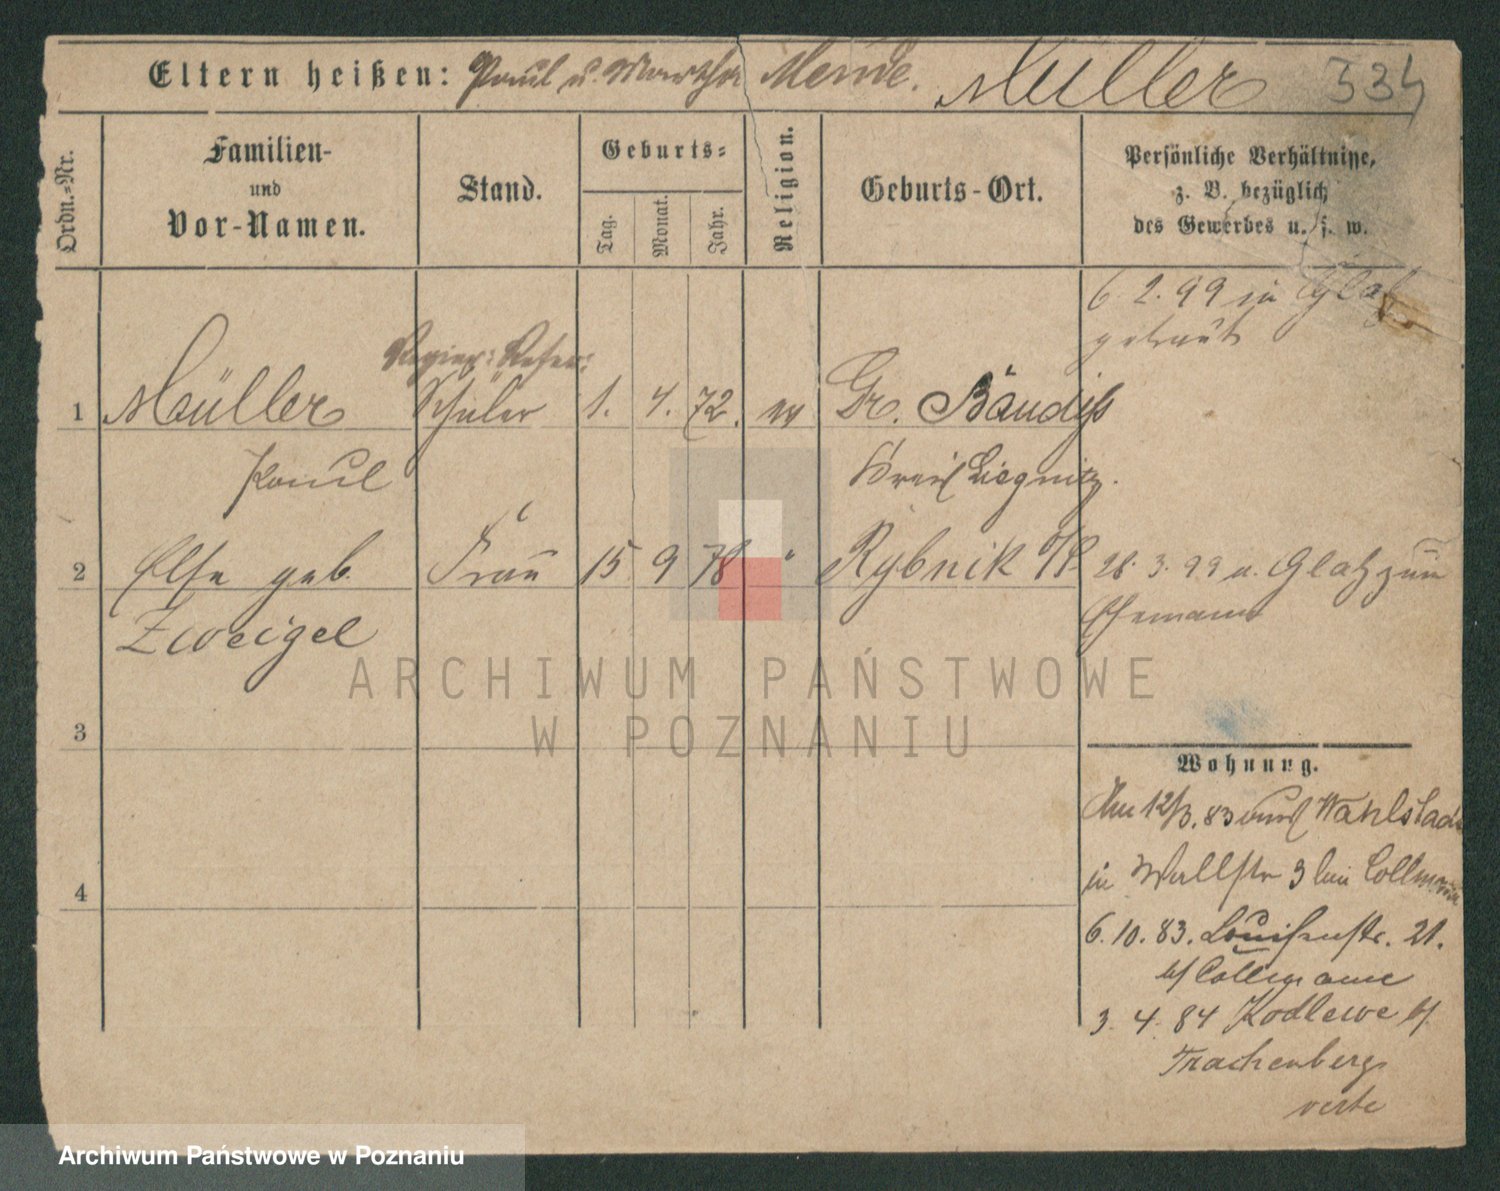 Eltern heißen: Paul u. Martha Mende. Müller 334
Ordn.-Nr.
Familien-
und
Vor-Namen.
Stand.
Geburts-
Tag.
Monat.
Jahr.
Religion.
Geburts-Ort.
Persönliche Verhältnisse,
z. B. bezüglich
des Gewerbes u. s. w.
6. 2. 99 in Glatz
getraut
Regier: Refer:
1 Müller Schüler 1. 4. 72. ev Gr. Bäudiß
Paul Kreis Liegnitz.
2 Else geb. Frau 15 9 78 " Rybnik O/S 28. 3. 99 v. Glatz zum
Ehemann
Zweigel
3
4
Wohnung.
Am 12/3. 83 aus Wahlstadt
in Wallstr 3 bei Collmann
6. 10. 83. Louisenstr. 21.
b/ Collmann
3. 4. 84 Kodlewe b/
Trachenberg
verte
ARCHIWUM PAŃSTWOWE
W POZNANIU
Archiwum Państwowe w Poznaniu